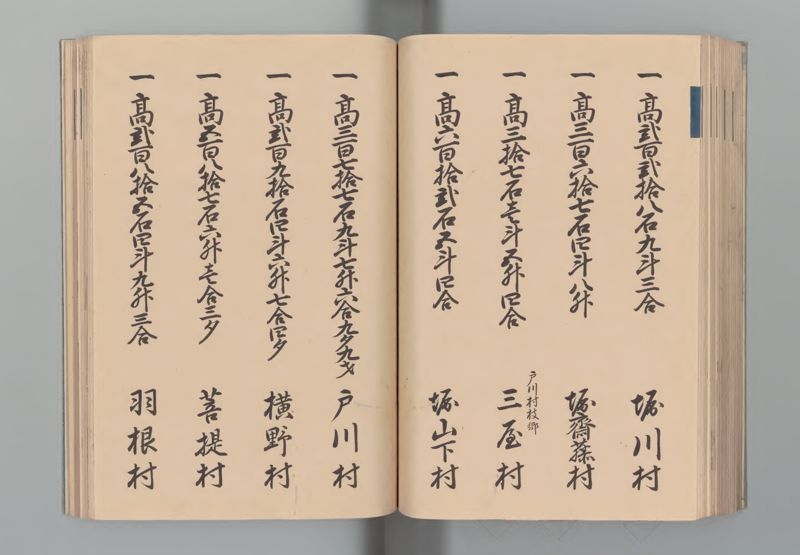 一 高弐百弐拾八石九斗三合 堀川村
一 高三百六拾七石四斗八升 堀齋藤村
一 高三拾七石壱斗五升四合 戸川村枝郷 三屋村
一 高六百拾弐石五斗四合 堀山下村
一 高三百七拾七石九斗七升六合九夕九才 戸川村
一 高弐百九拾石四斗六升七合四夕 横野村
一 高五百八拾七石六升壱合三夕 菩提村
一 高弐百八拾五石四斗九升三合 羽根村